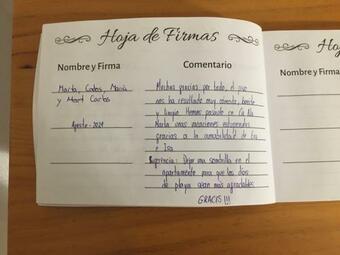 Hoja de Firmas
Nombre y Firma
Comentario
Marta, Carlos, María
y Mari Carlos
Agosto - 2024
Muchas gracias por todo, el piso
nos ha resultado muy cómodo, bonito
y limpio. Hemos pasado en
unas vacaciones estupendas
gracias a la amabilidad de Eva
e Isa
Sugerencia: Dejar una sombrilla en el
apartamento para que los días
de playa sean más agradables
GRACIS!!!
Hoj
Nombre y Firma